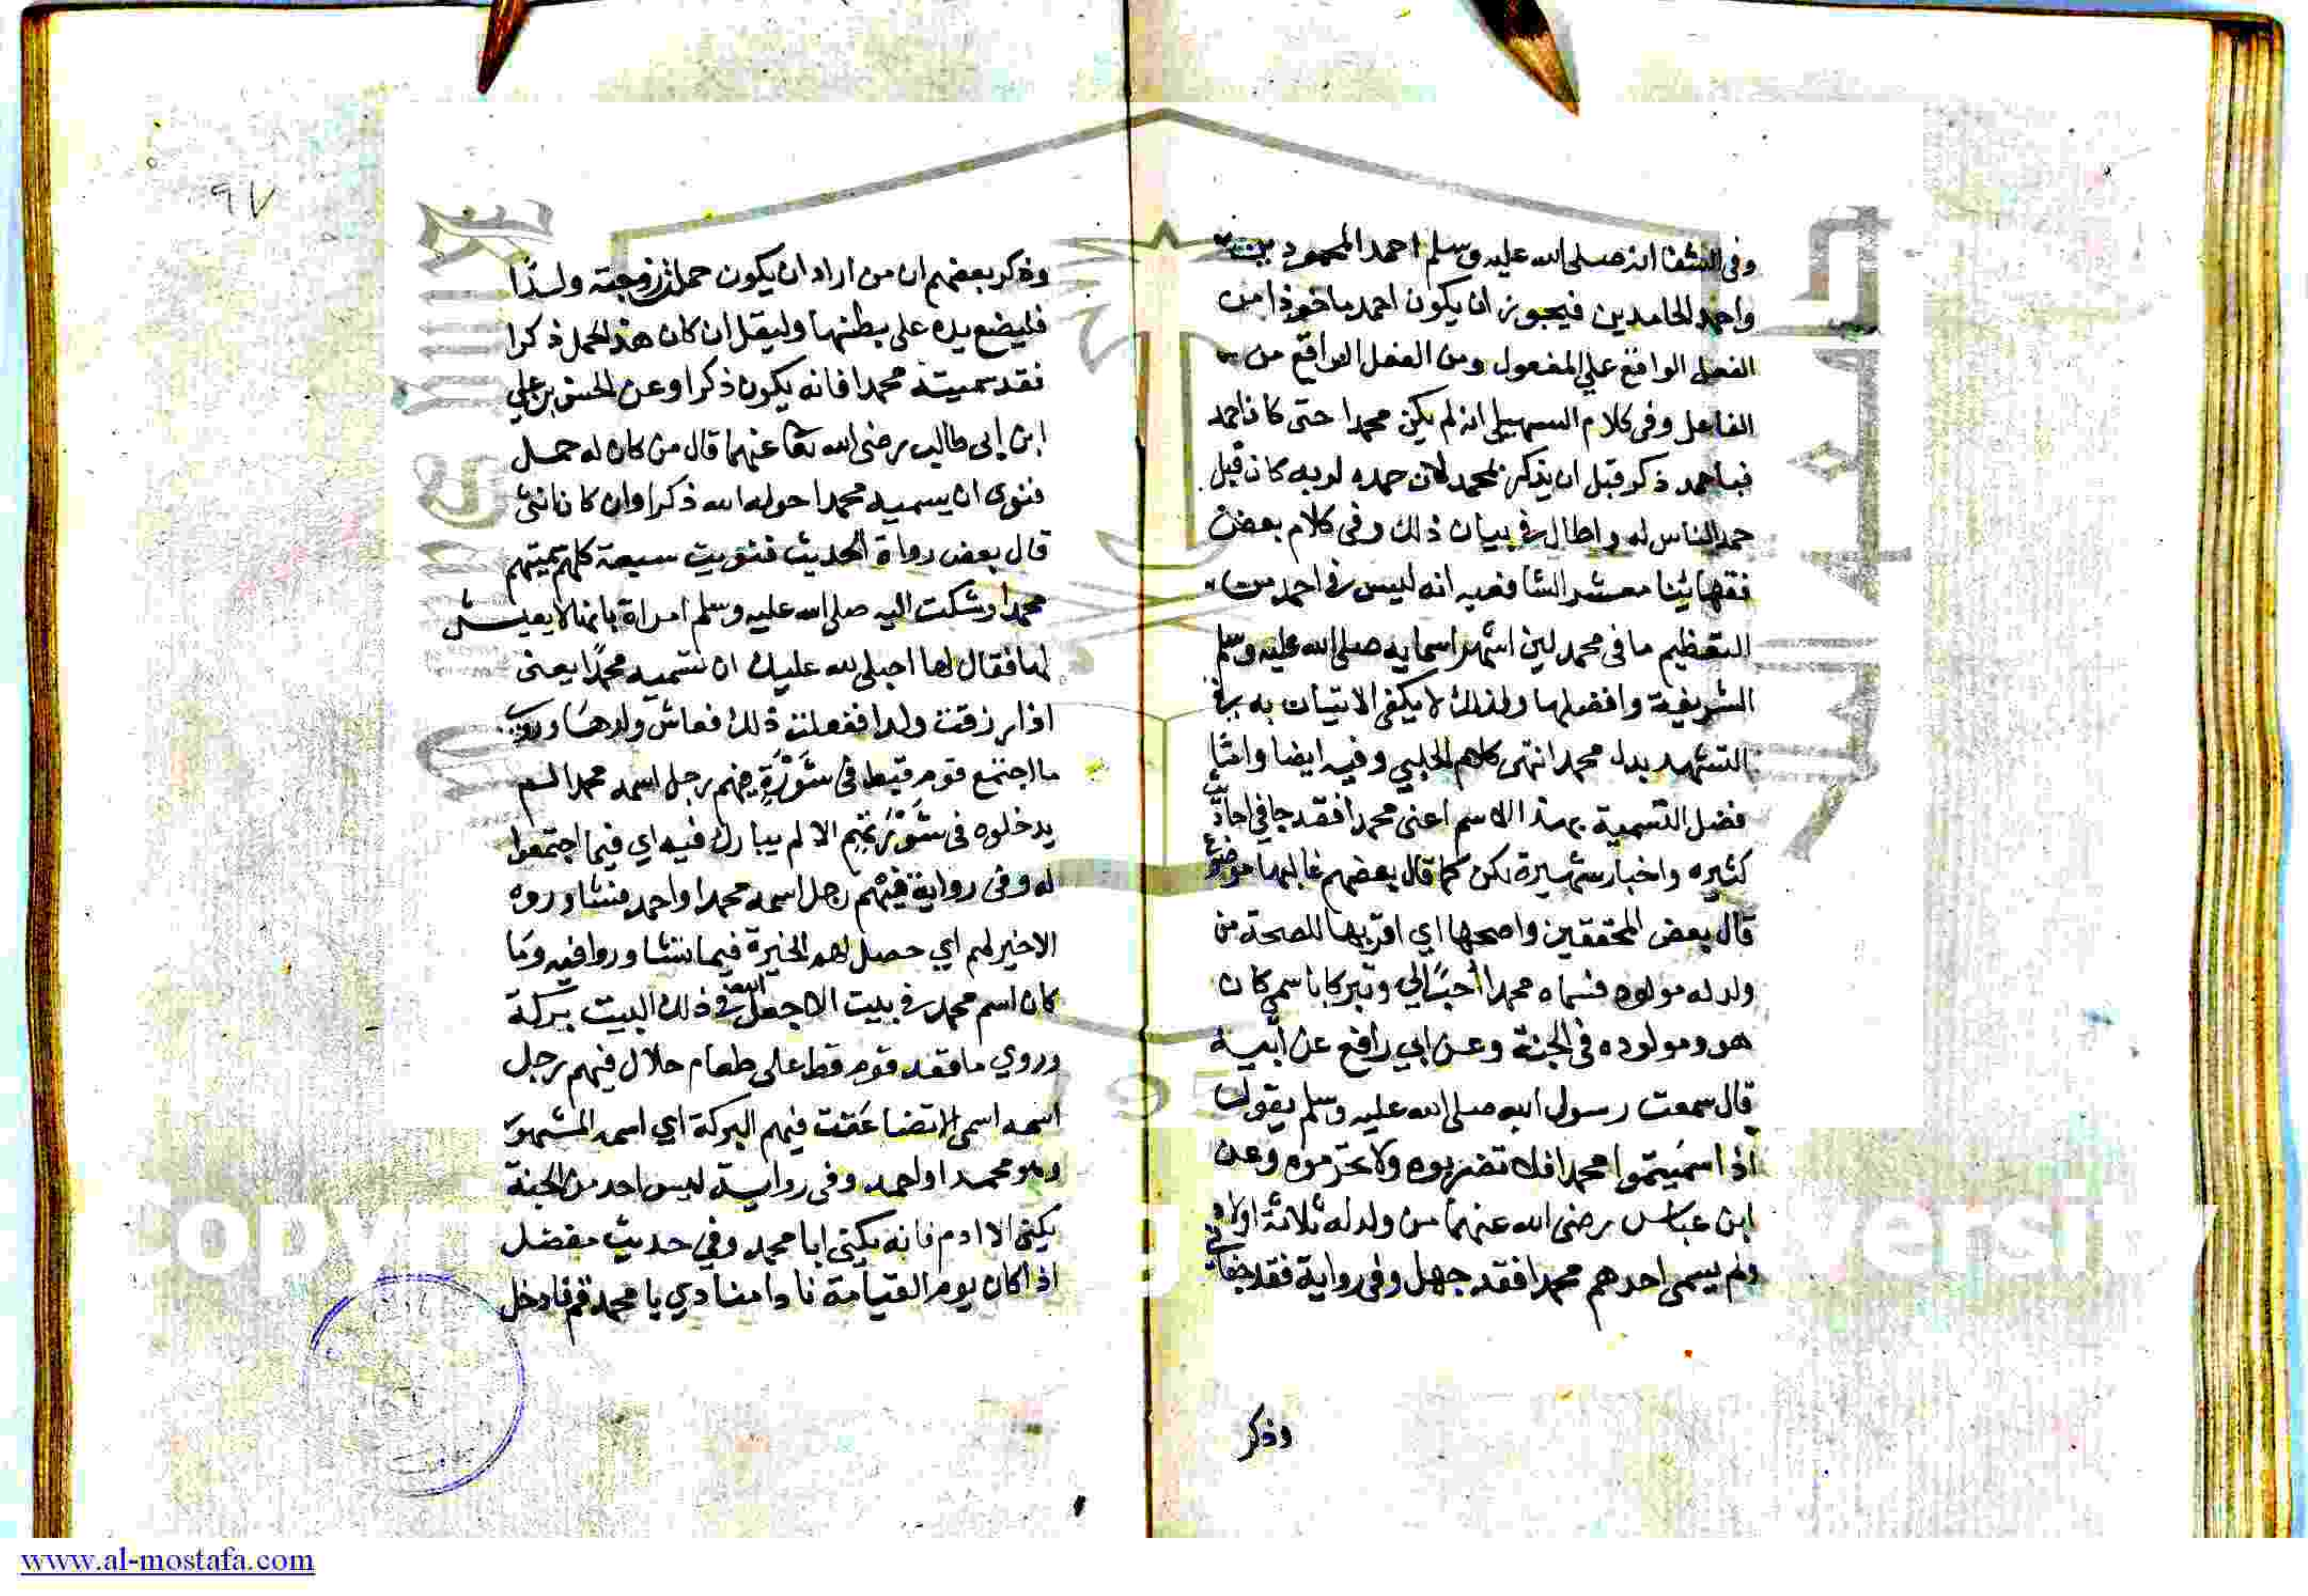 وفى الشفا انه صلى الله عليه وسلم احمد المحمودين
واحمد الحامدين فيجوز ان يكون احمد ماخوذا من
الفعل الواقع على المفعول ومن الفعل الواقع من
الفاعل وفى كلام السهيلى انه لم يكن محمدا حتى كان احمد
فباحمد ذكر قبل ان يذكر بمحمد لان حمده لربه كان قبل
حمد الناس له واطال فى بيان ذلك وفى كلام بعض
فقهائنا معشر الشافعيه انه ليس فى احمد من
التعظيم ما فى محمد لين اشهر اسمايه صلى الله عليه وسلم
الشريفة وافضلها ولذلك لا يكفى الاتيان به فى
التشهد بدل محمد انتهى كلام الحلبي وفيه ايضا واما
فضل التسمية بهذا الاسم اعنى محمدا فقد جا في احاديث
كثيره واخبار شهيرة لكن كما قال بعضهم غالبها موضوع
قال بعض المحققين واصحها اي اقربها للصحة من
ولد له مولود فسماه محمدا حبا لي وتبركا باسمي كان
هو ومولوده فى الجنة وعن ابي رافع عن ابيه
قال سمعت رسول الله صلى الله عليه وسلم يقول
اذا سميتموا محمدا فلا تضربوه ولا تحرموه وعن
ابن عباس رضى الله عنهما من ولد له ثلاثة اولاد
ولم يسمى احدهم محمدا فقد جهل وفى رواية فقد جفانى
وذكر
٩٧
وذكر بعضهم ان من اراد ان يكون حمل زوجته ولدا
فليضع يده على بطنها وليقل ان كان هذا الحمل ذكرا
فقد سميته محمدا فانه يكون ذكرا وعن الحسن بن علي
ابن ابي طالب رضى الله تعا عنهما قال من كان له حمل
فنوى ان يسميه محمدا حوله الله ذكرا وان كان انثى
قال بعض رواة الحديث فنويت سبعة كلهم سميتهم
محمدا وشكت اليه صلى الله عليه وسلم امراة بانها لا يعيش
لها فقال لها اجعلى لله عليك ان تسميه محمدا يعنى
اذا رزقت ولدا ففعلت ذلك فعاش ولدها وروى
ما اجتمع قوم قط فى شَوْرَةٍ فيهم رجل اسمه محمد لم
يدخلوه فى شَوْرَتهم الا لم يبارك فيه اي فيما اجتمعوا
له وفى رواية فيهم رجل اسمه محمدا واحمد فشاوروه
الا خير لهم اي حصل لهم الخيرة فيما تشاوروا فيه وما
كان اسم محمد فى بيت الا جعل الله فى ذلك البيت بركة
وروي ما قعد قوم قط على طعام حلال فيهم رجل
اسمه اسمى الا تضاعفت فيهم البركة اي اسمه المشهور
وهو محمد او احمد وفى رواية ليس احد من الجنة
يكنى الا ادم فانه يكنى ابا محمد وفي حديث مفضل
اذا كان يوم القيامة نادا منادي يا محمد قم فادخل
www.al-mostafa.com